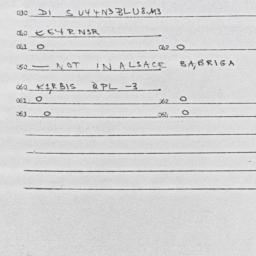 030 DI SU44N3BLU8.M3
040 KE4RN3R
041 O 042 O
050 — NOT IN ALSACE BA,BRIGA
060 K1RBIS QPL -3
061 O 062 O
063 O 064 O